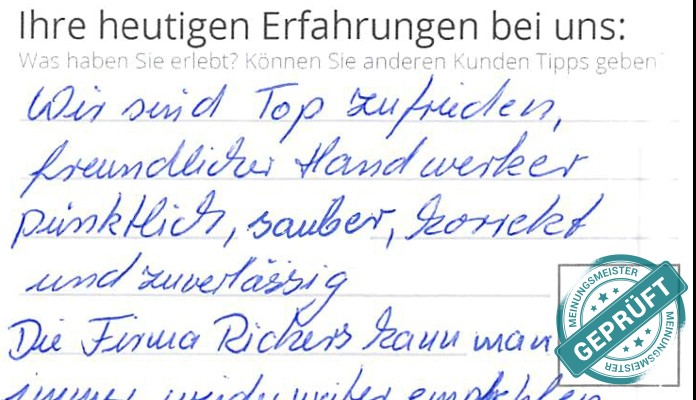 Ihre heutigen Erfahrungen bei uns:
Was haben Sie erlebt? Können Sie anderen Kunden Tipps geben
Wir sind Top zufrieden,
freundlicher Handwerker
pünktlich, sauber, korrekt
und zuverlässig
Die Firma Rickers kann man
immer wieder weiter empfehlen
MEINUNGSMEISTER
GEPRÜFT
MEINUNGSMEISTER